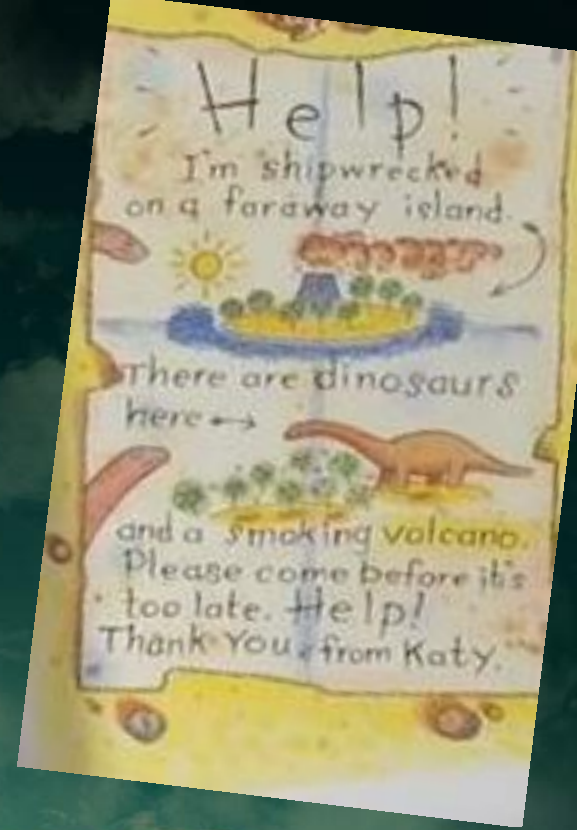 Help!
I'm shipwrecked
on a faraway island.
There are dinosaurs
here
and a smoking volcano.
Please come before it's
too late. Help!
Thank You, from Katy.